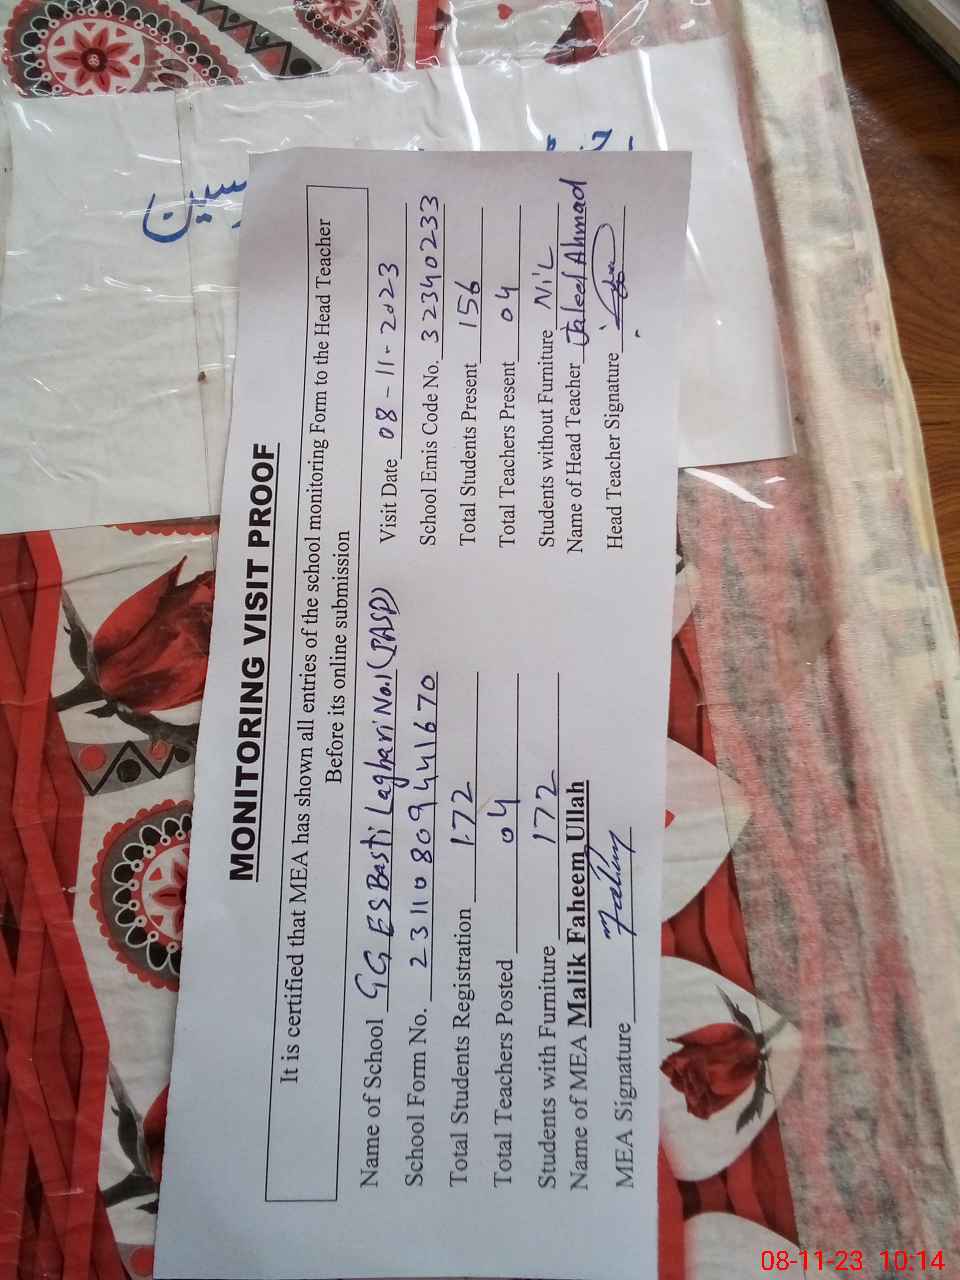 سین
MONITORING VISIT PROOF
It is certified that MEA has shown all entries of the school monitoring Form to the Head Teacher
Before its online submission
Name of School GGES Basti Laghari No.1 (PASD) Visit Date 08-11-2023
School Form No. 23110809441670 School Emis Code No. 32340233
Total Students Registration 172 Total Students Present 156
Total Teachers Posted 04 Total Teachers Present 04
Students with Furniture 172 Students without Furniture Nil
Name of MEA Malik Faheem Ullah Name of Head Teacher Jaleel Ahmad
MEA Signature Faheem Head Teacher Signature
08-11-23 10:14